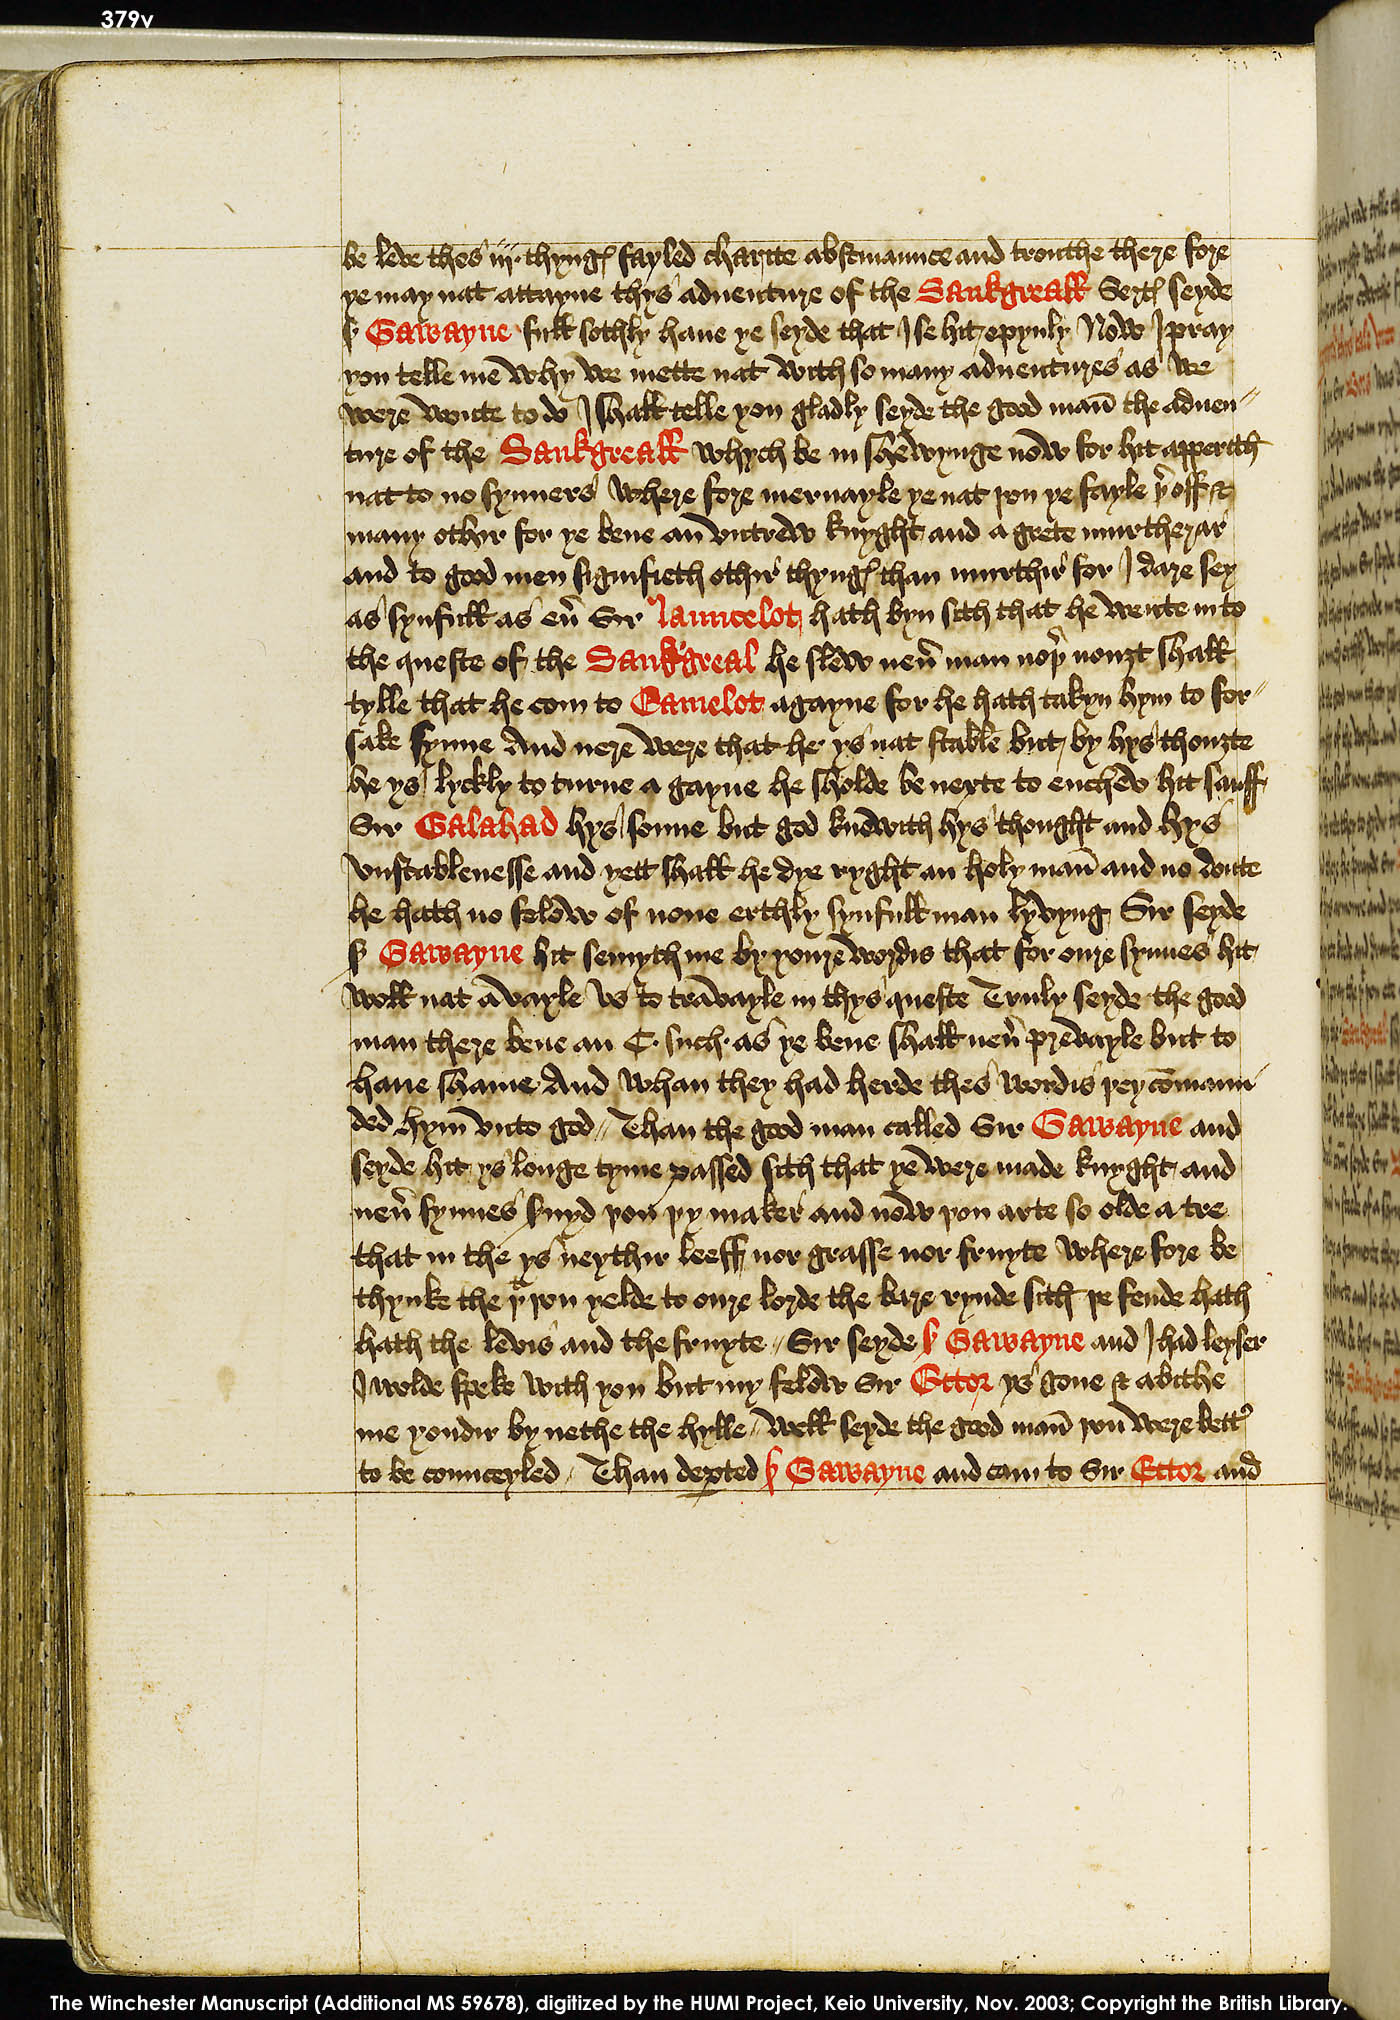 379v
be leve thes iij thyngꝭ fayled charite abstinaunce and trouthe there fore
ye may nat attayne thys adventure of the Sankgreall Sertꝭ seyde
sˀ Gawayne full sothly have ye seyde that I se hit opynly Now I pray
you telle me why we mette nat with so many adventures as we
were wonte to do I shall telle you gladly seyde the good man the adven
ture of the Sankgreall whych be in shewynge now for hit apperith
nat to no synners where fore mervayle ye nat þou ye fayle þˀoff &
many othir for ye bene an untrew knyght and a grete murtherar
and to good men signifieth othir thyngꝭ than murthir for I dare sey
as synfull as evˀ Sir Launcelot hath byn sith that he wente in to
the queste of the Sankgreal he slew nevˀ man noþˀ nouȝt shall
tylle that he com to Camelot agayne for he hath takyn hym to for
sake synne And nere were that he ys nat stable but by hys thouȝte
he ys lyckly to turne a gayne he sholde be nexte to encheve hit sauff
Sir Galahad hys sonne but god knowith hys thought and hys
unstablenesse and yett shall he dye ryght an holy man and no doute
he hath no felow of none erthly synfull man lyvyng Sir seyde
sˀ Gawayne hit semyth me by youre wordis that for oure synnes hit
woll nat avayle us to travayle in thys queste Truly seyde the good
man there bene an C. such as ye bene shall nevˀ prevayle but to
have shame And whan they had herde thes wordis þey com̄aun
ded hym unto god // Than the good man called Sir Gawayne and
seyde hit ys longe tyme passed sith that ye were made knyght and
nevˀ synnes suyd þou þy maker and now þou arte so olde a tre
that in the ys neythir leeff nor grasse nor fruyte where fore be
thynke the þᵗ þou yelde to oure lorde the bare rynde sith þe fende hath
hath the levis and the fruyte // Sir seyde sˀ Gawayne and I had leyser
I wolde speke with you but my felow Sir Ector ys gone & abithe
me yondir by nethe the hylle // well seyde the good man þou were bettˀ
to be counceyled / Than deꝑted sˀ Gawayne and cam to Sir Ector and
The Winchester Manuscript (Additional MS 59678), digitized by the HUMI Project, Keio University, Nov. 2003; Copyright the British Library.